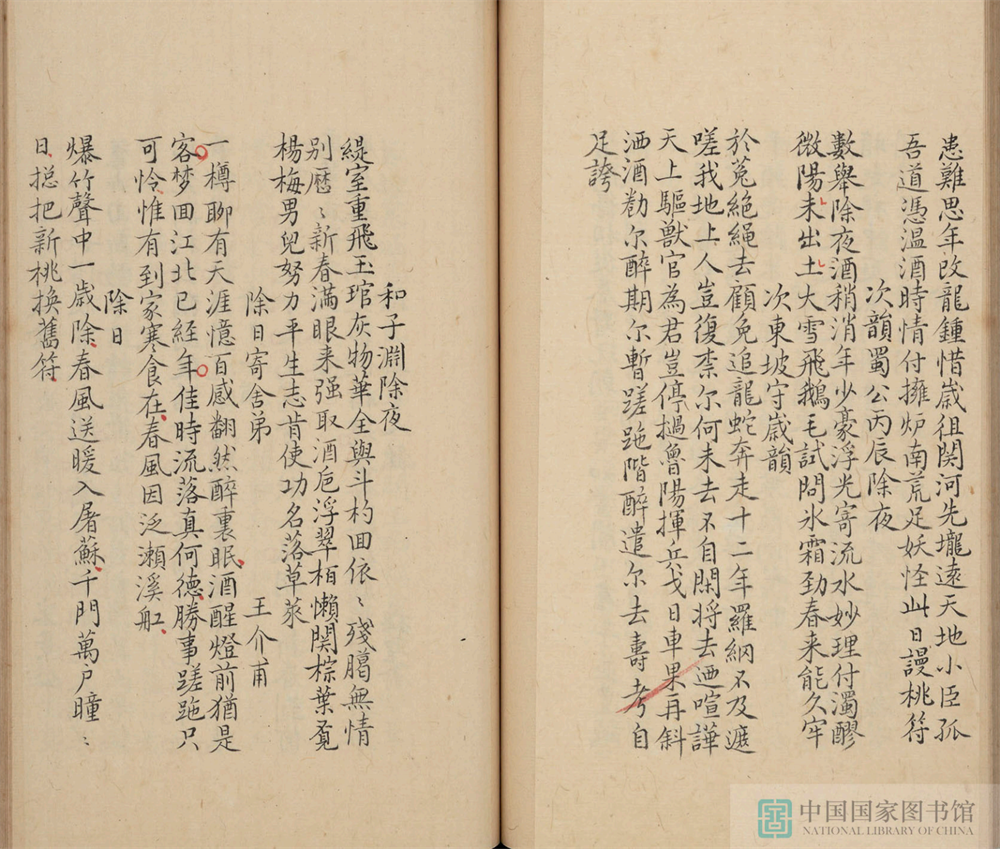 患難思年改龍鍾惜歲徂関河先壠遠天地小臣孤
吾道憑溫酒時情付擁炉南荒足妖怪此日謾桃符
次韻蜀公丙辰除夜
數舉除夜酒稍消年少豪浮光寄流水妙理付濁醪
微陽未出土大雪飛鵝毛試問氷霜勁春来能久牢
次東坡守歲韻
於菟絶繩去顧兔追龍蛇奔走十二年羅網不及遮
嗟我地上人豈復柰尔何未去不自閑将去廼喧譁
天上驅獸官為君豈停撾魯陽揮兵戈日車果再斜
洒酒勸尔醉期尔暫蹉跎階醉遣尔去壽考自
足誇
和子淵除夜
緹室重飛玉琯灰物華全與斗杓回依〻殘臈無情
别厯〻新春滿眼来强取酒巵浮翠栢懶開棕葉覔
楊梅男兒努力平生志肯使功名落草萊
除日寄舍弟 王介甫
一樽聊有天涯憶百感翻然醉裏眠酒醒燈前猶是
客梦回江北已經年佳時流落真何德勝事蹉跎只
可怜惟有到家寒食在春風因泛瀨溪舡
除日
爆竹聲中一歲除春風送暖入屠蘇千門萬户曈〻
日揔把新桃換舊符
中国国家图书馆
NATIONAL LIBRARY OF CHINA